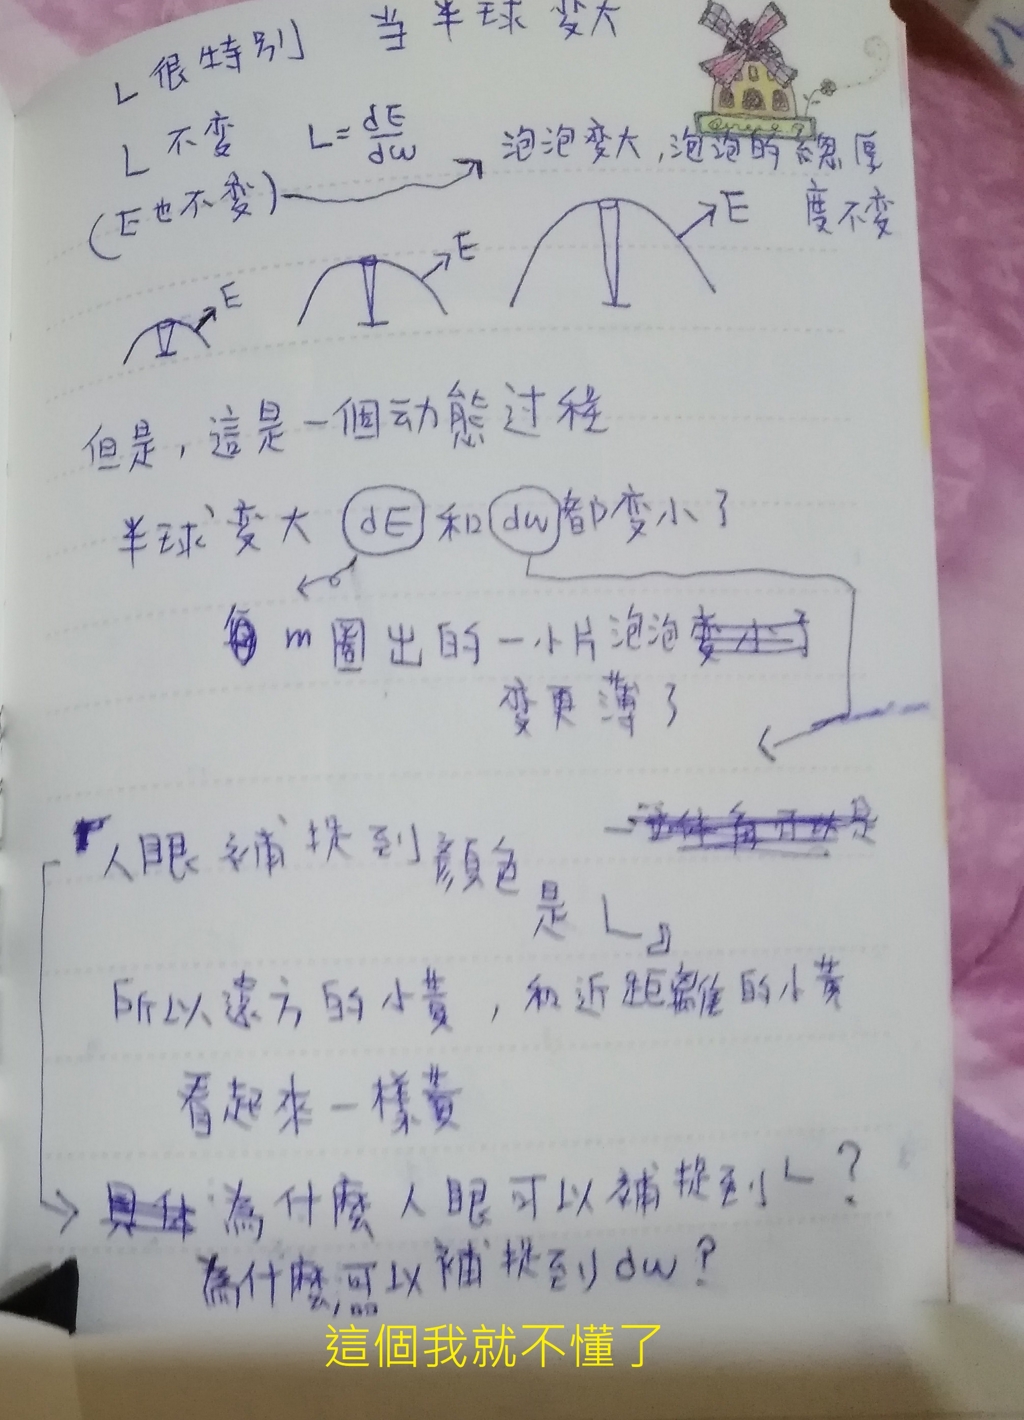 L 很特別 当半球变大
L 不变 L = dE/dw 泡泡变大,泡泡的總厚
(E也不变) 度不变
E E E
但是,這是一個动態过程
半球变大 dE 和 dw 都变小了
m圈出的一小片泡泡
变更薄了
『人眼補捉到顏色
是 L』
所以遠方的小黃,和近距離的小黃
看起來一樣黃
為什麼人眼可以補捉到 L ?
為什麼可以補捉到 dw ?
這個我就不懂了